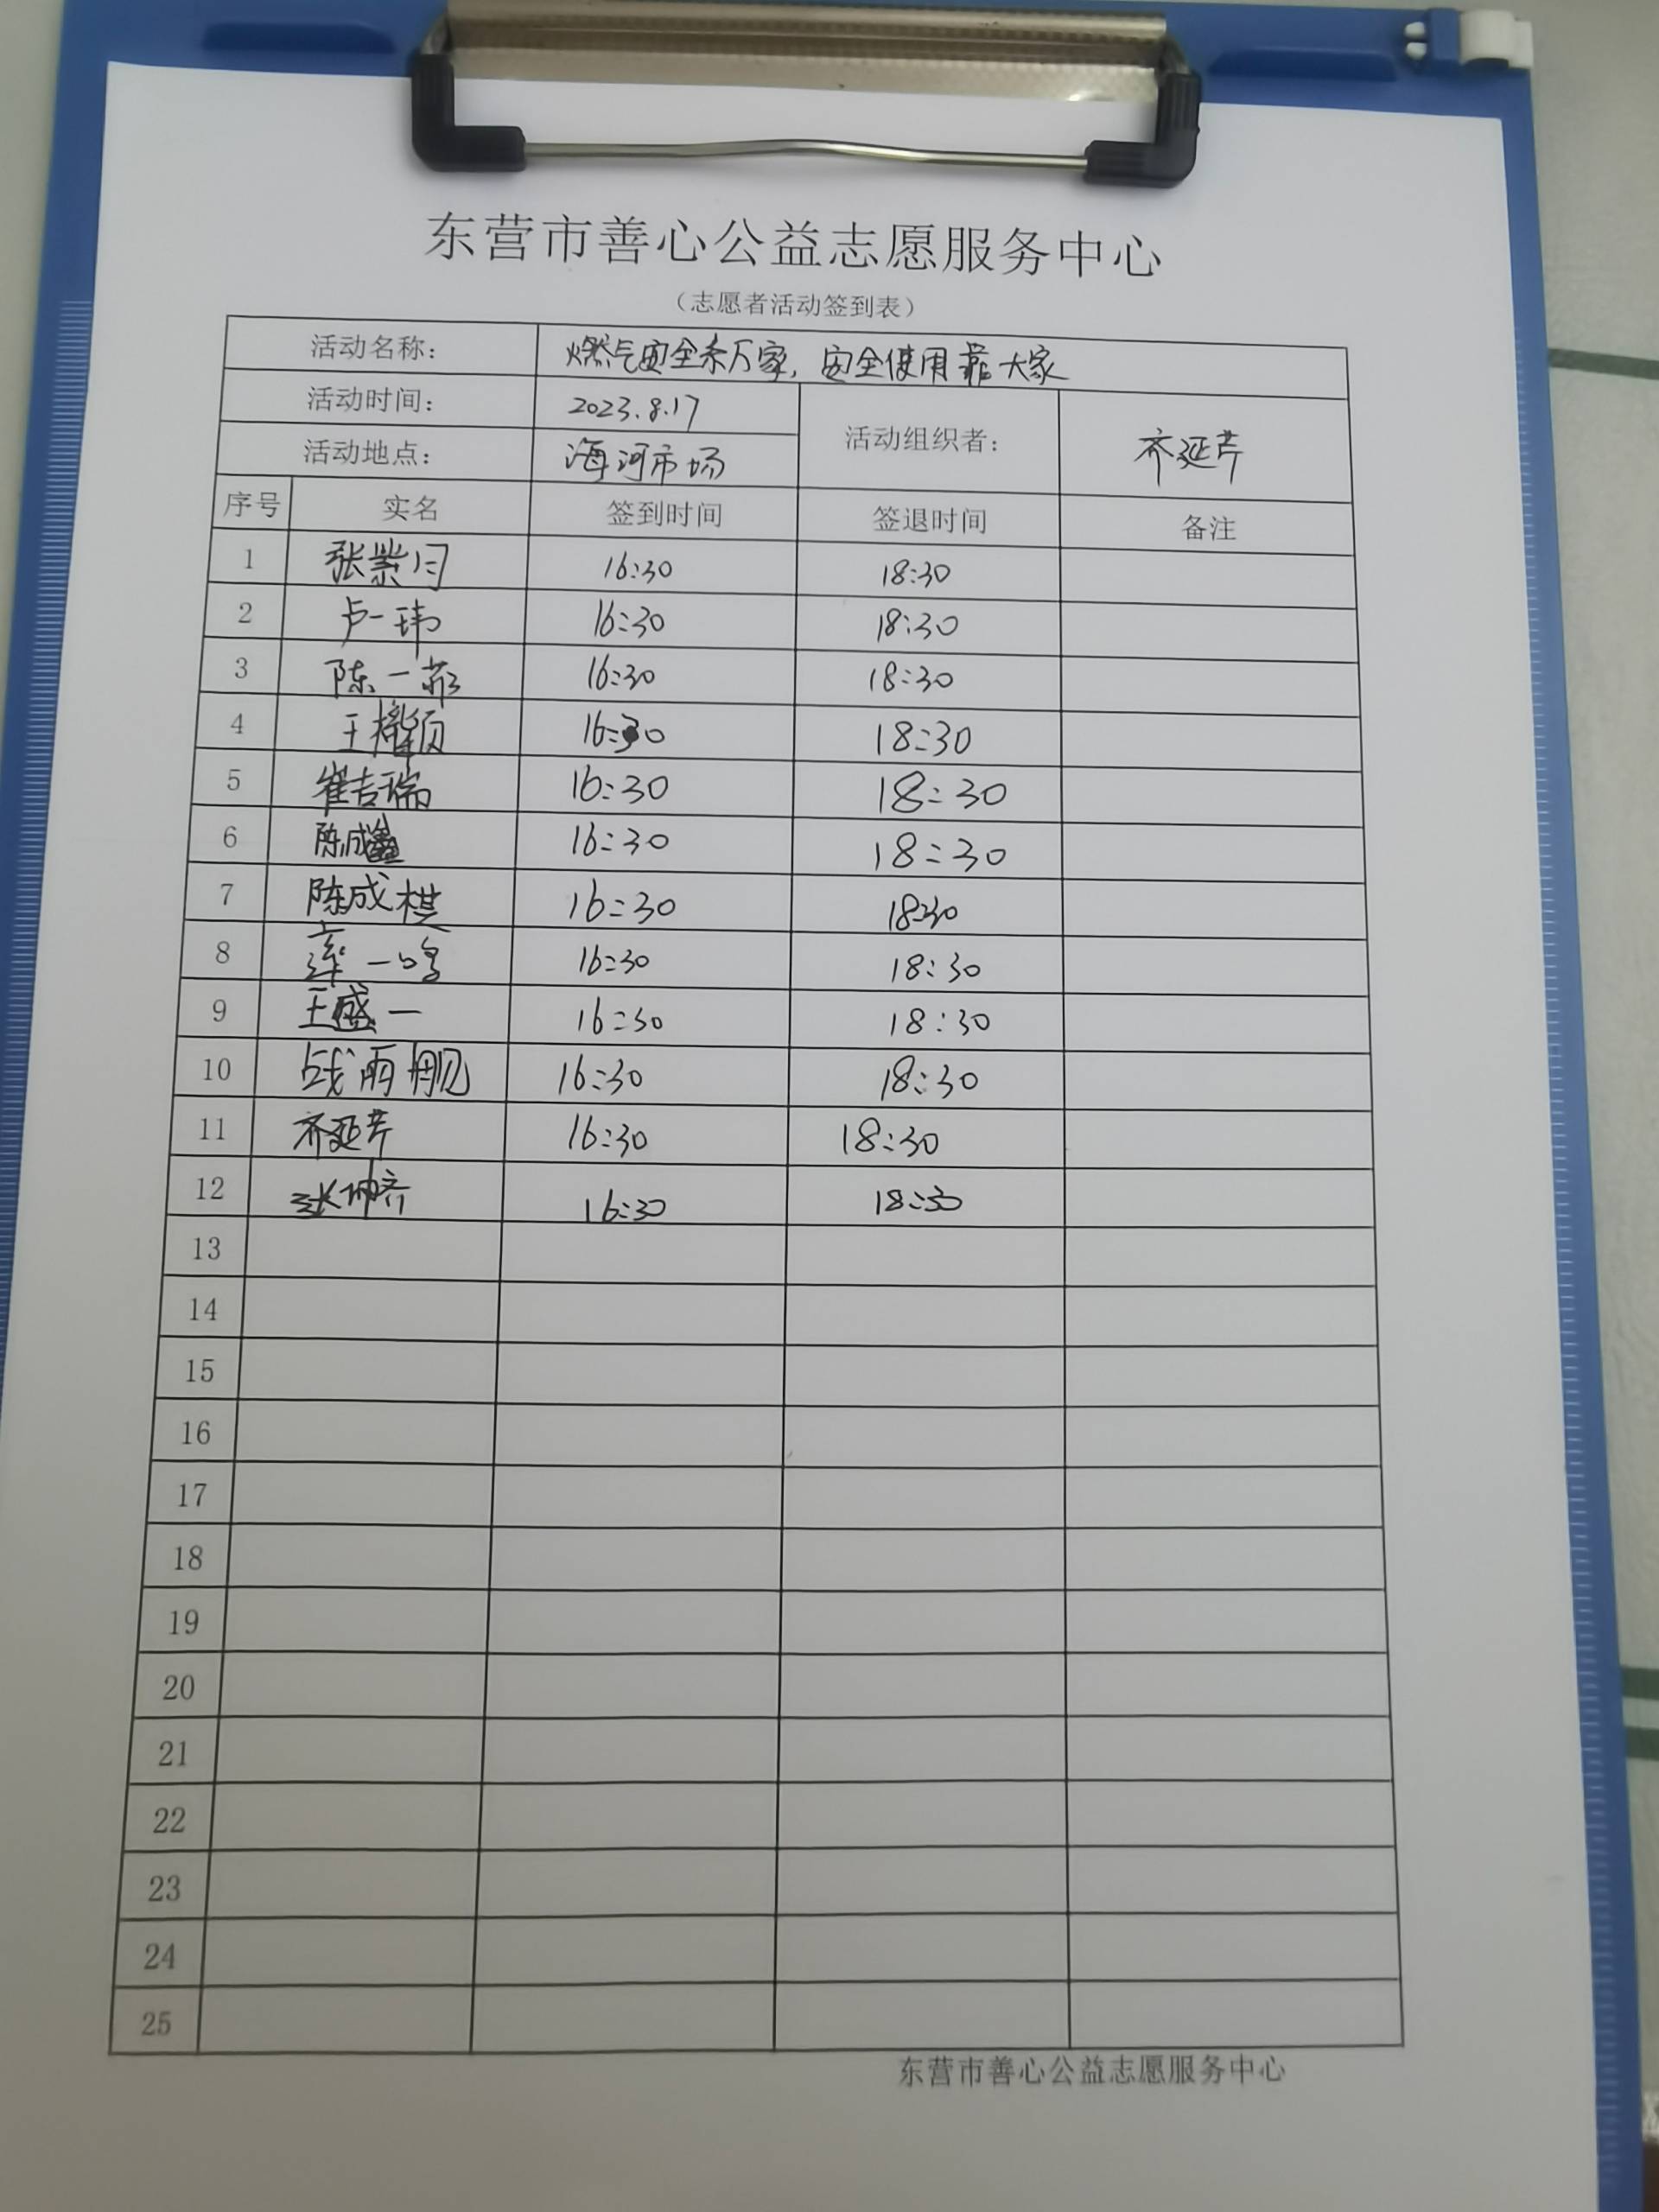 东营市善心公益志愿服务中心
（志愿者活动签到表）
活动名称： 燃气安全系万家，安全使用靠大家
活动时间： 2023.8.17 活动组织者： 齐延芹
活动地点： 海河市场
序号 实名 签到时间 签退时间 备注
1 张紫月 16:30 18:30
2 卢一玮 16:30 18:30
3 陈一菲 16:30 18:30
4 王 16:30 18:30
5 崔吉瑞 16:30 18:30
6 陈成 16:30 18:30
7 陈成棋 16:30 18:30
8 一鸣 16:30 18:30
9 王盛一 16:30 18:30
10 战雨 16:30 18:30
11 齐延芹 16:30 18:30
12 张坤齐 16:30 18:30
13
14
15
16
17
18
19
20
21
22
23
24
25
东营市善心公益志愿服务中心